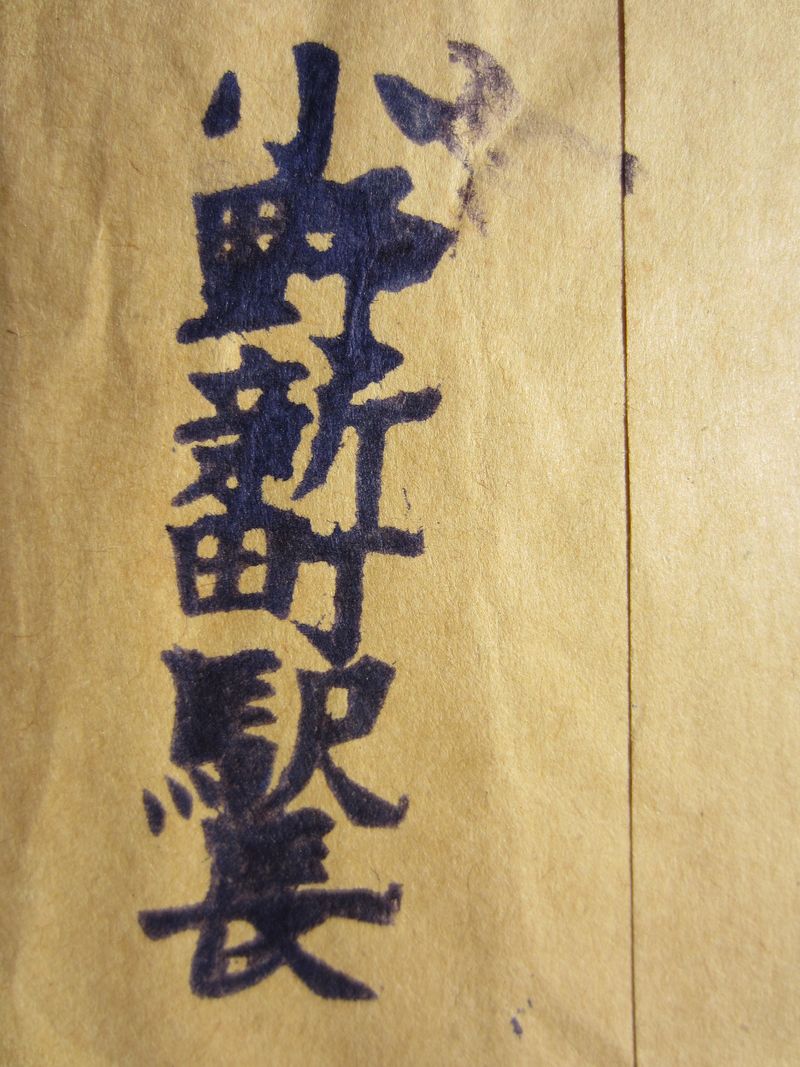 小野新町駅長